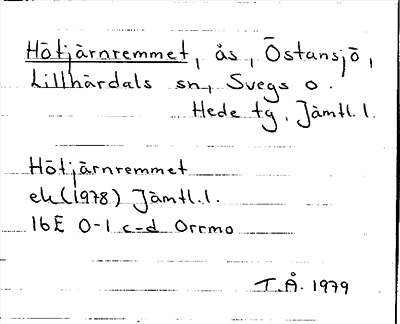 Hötjärnremmet, ås, Östansjö,
Lillhärdals sn, Svegs o.
Hede tg. Jämtl.l.
Hötjärnremmet
ek(1978) Jämtl.l.
16E 0-1 c-d Orrmo
T.Å. 1979